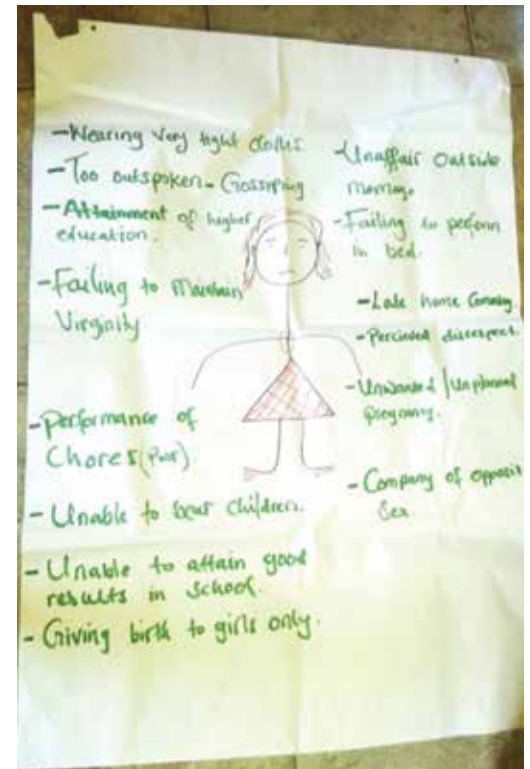 -Wearing Very tight cloths
-Too outspoken - Gossiping
-Attainment of higher
education.
-Failing to Maintain
Virginity
-Performance of
Chores (Poor)
-Unable to bear children.
-Unable to attain good
results in school.
-Giving birth to girls only.
-Unaffair Outside
marriage
-Failing to perform
in bed.
-Late home Coming
-Percieved disrespect.
-Unwanted/Unplanned
pregnancy.
-Company of opposit
Sex